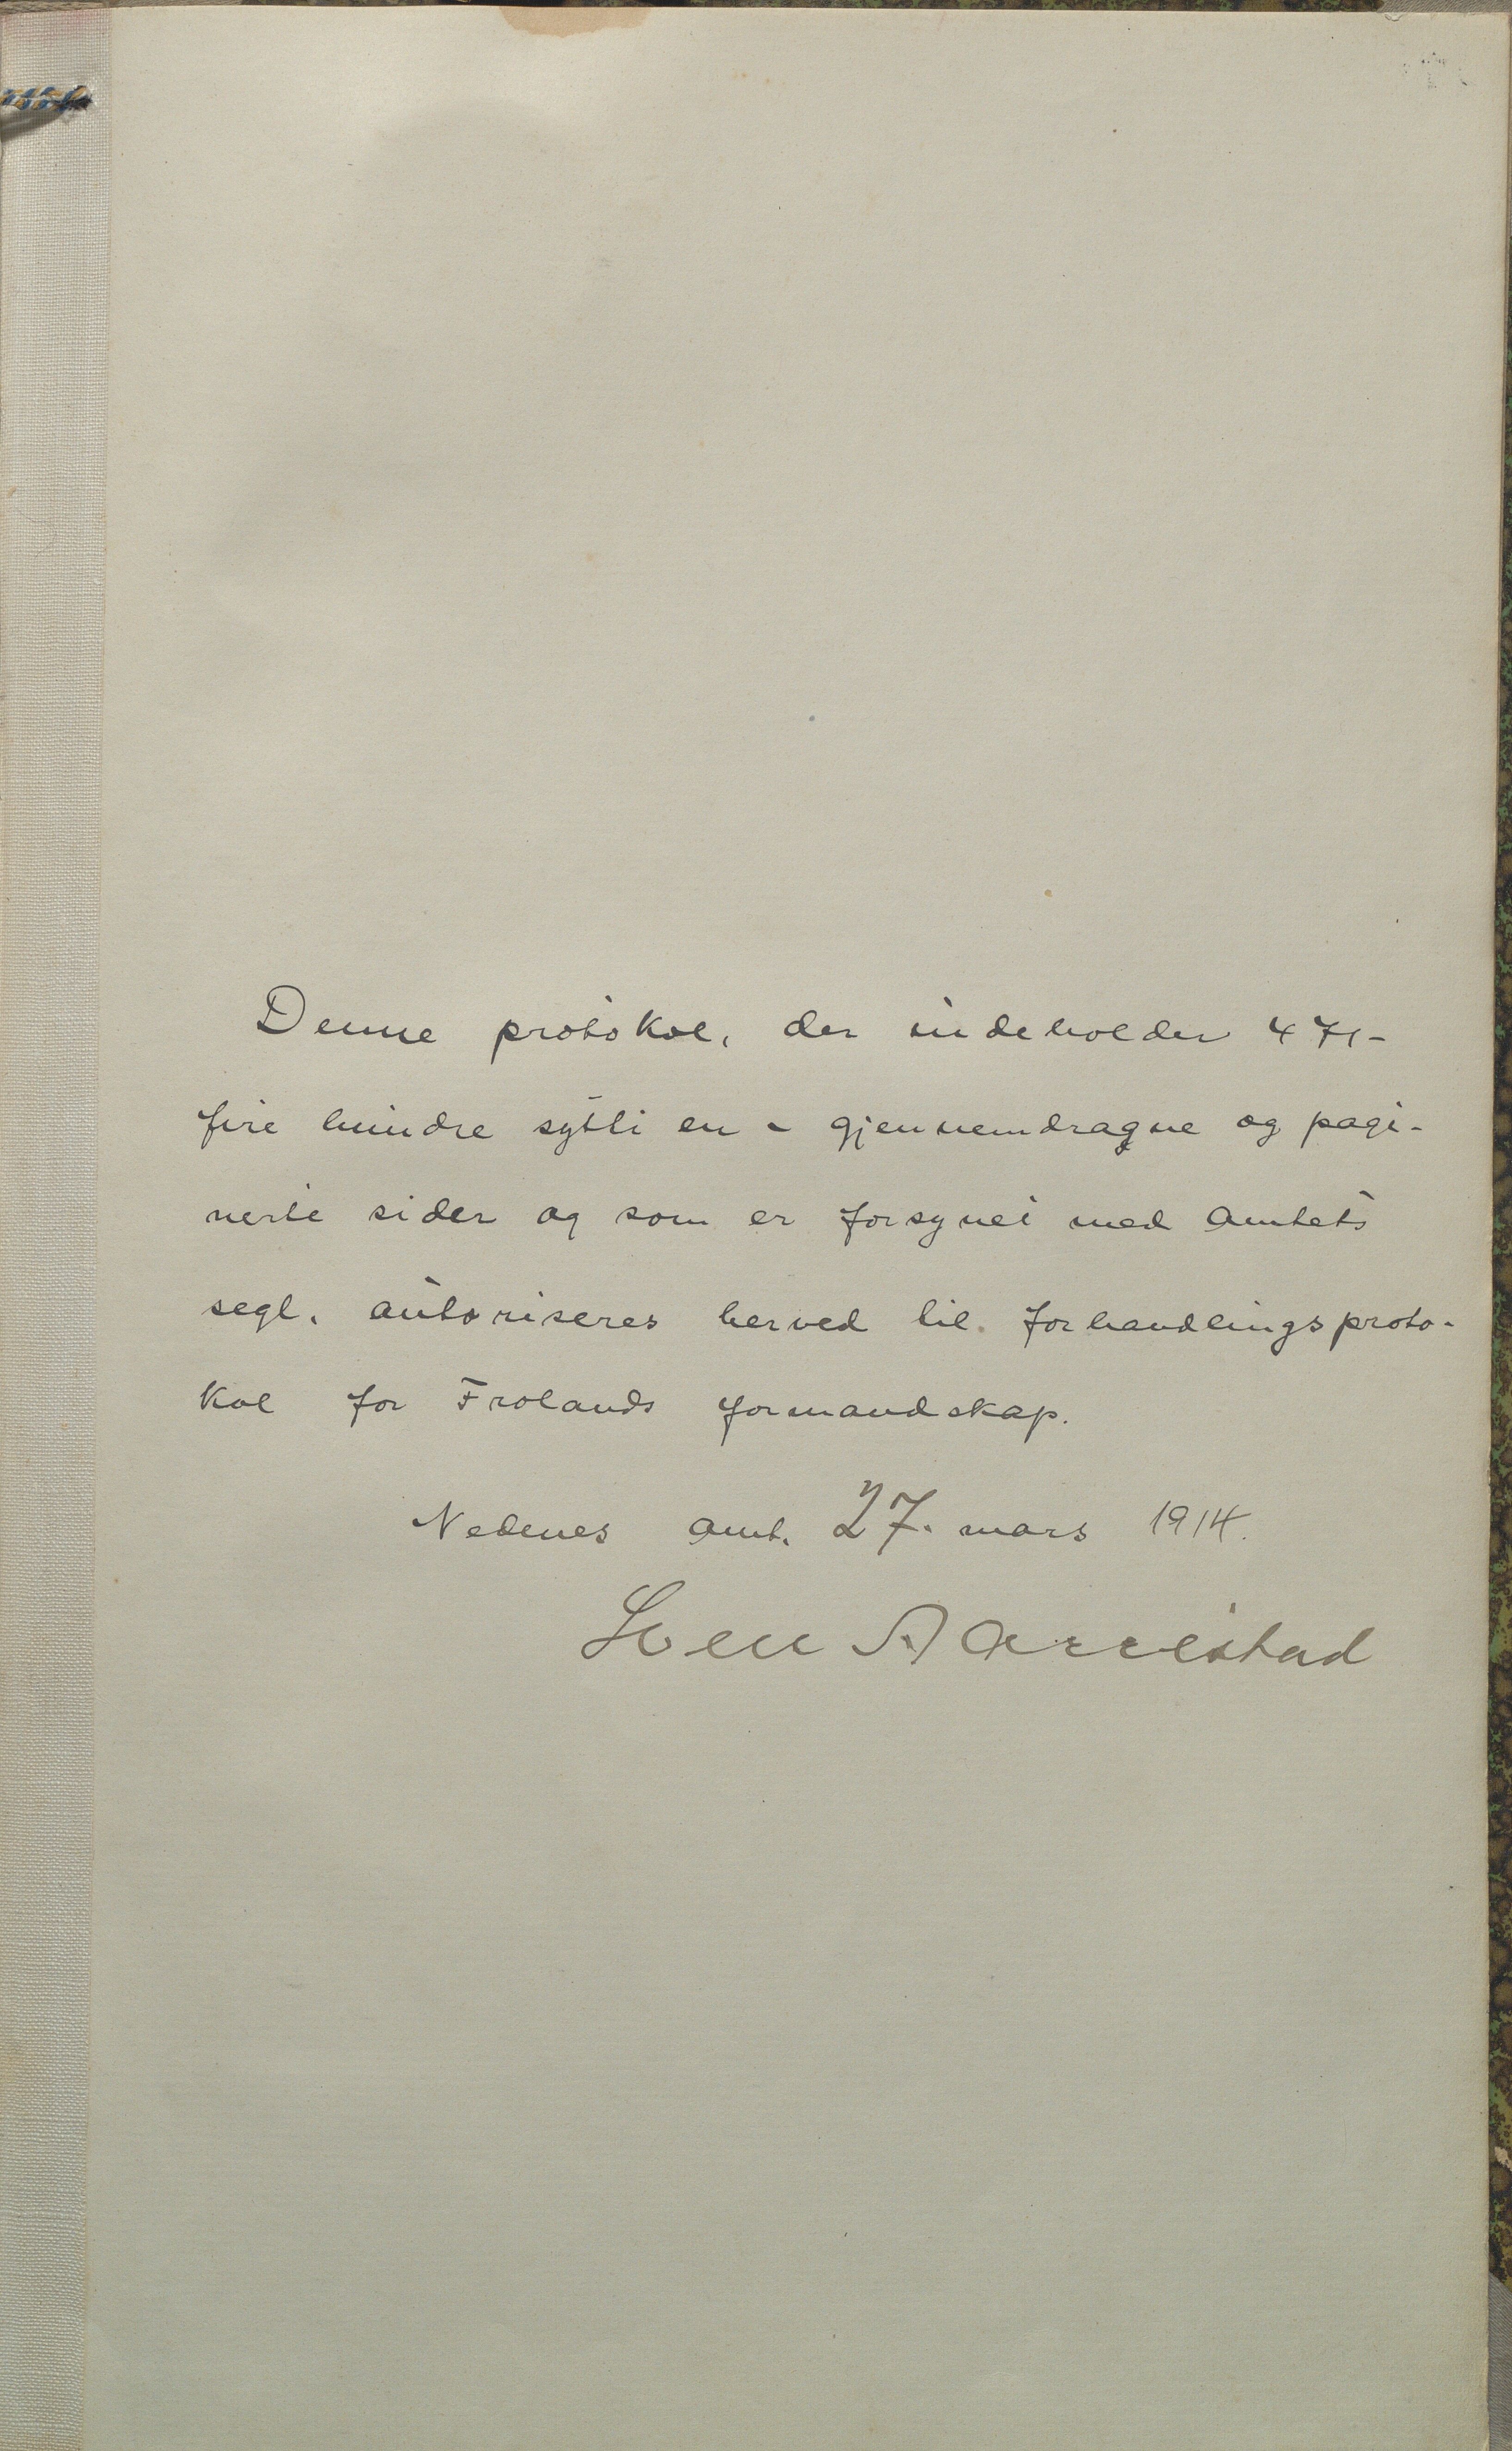 Denne protokol, der indeholder 471-
fire hundre sytti en - gjennemdragne og pagi-
nerte sider og som er forsynet med amtets
segl, autoriseres herved til forhandlingsproto-
kol for Frolands formandskap.
Nedenes amt. 27. mars 1914.
Sven Aarrestad